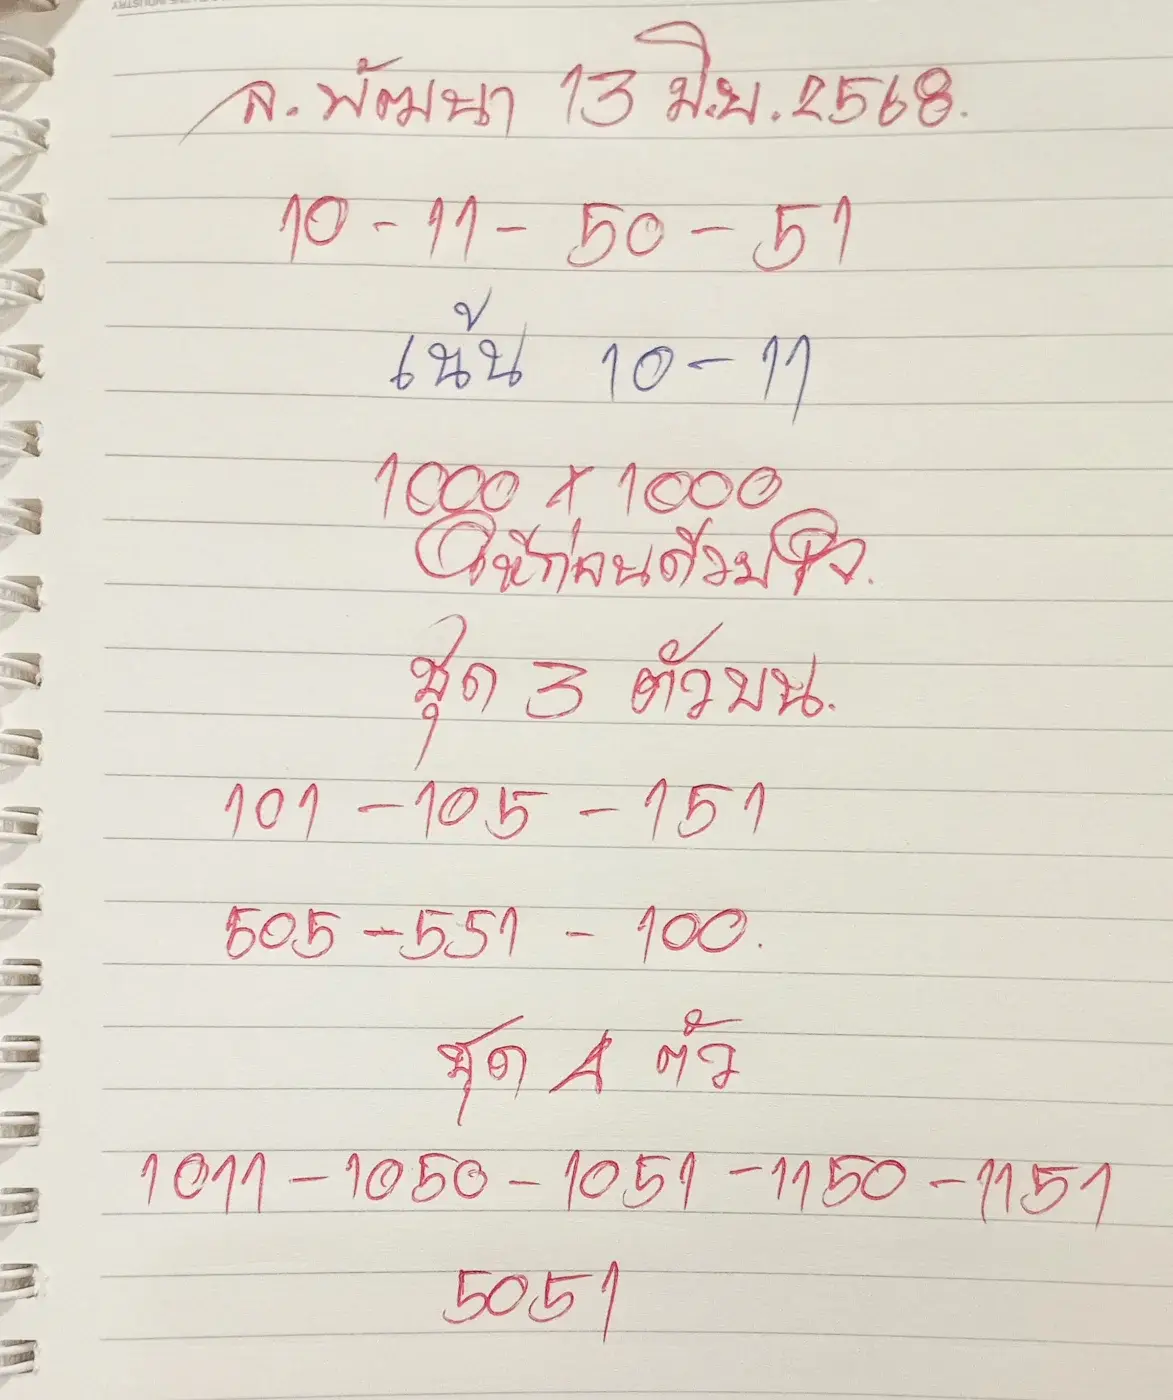 ล.พัฒนา 13 มิ.ย.2568.
10-11-50-51
เน้น 10-11
1000 x 1000
ให้ก่อนด้วยใจ.
ชุด 3 ตัวบน.
101-105-151
505-551-100.
ชุด 4 ตัว
1011-1050-1051-1150-1151
5051